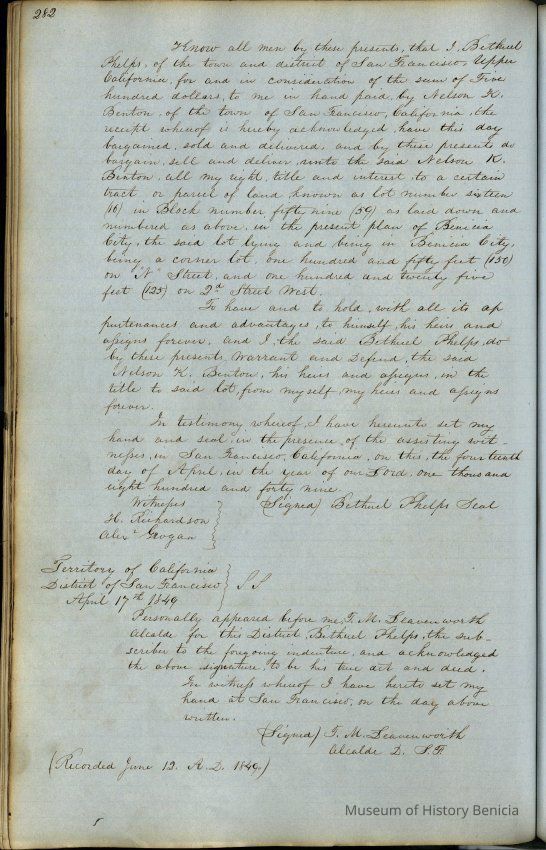 282
Know all men by these presents, that I, Bethuel
Phelps, of the town and district of San Francisco, Upper
California, for and in consideration of the sum of Five
hundred dollars, to me in hand paid, by Nelson K.
Benton, of the town of San Francisco, California, the
receipt whereof is hereby acknowledged, have this day
bargained, sold and delivered, and by these presents do
bargain, sell and deliver, unto the said Nelson K.
Benton, all my right, title and interest, to a certain
tract or parcel of land, known as lot number sixteen
(16) in Block number fifty nine (59) as laid down and
numbered as above, in the present plan of Benicia
City, the said lot lying and being in Benicia City,
being a corner lot, one hundred and fifty feet (150)
on "N" Street, and one hundred and twenty five
feet (125) on 2d Street West.
To have and to hold, with all its ap
purtenances and advantages, to himself, his heirs and
assigns forever, and I, the said Bethuel Phelps, do
by these presents, Warrant and Defend, the said
Nelson K. Benton, his heirs and assigns, in the
title to said lot, from myself, my heirs and assigns
forever.
In testimony whereof, I have hereunto set my
hand and seal, in the presence of the assisting wit-
nesses, in San Francisco, California, on this, the fourteenth
day of April, in the year of our Lord, one thousand
eight hundred and forty nine.
Witnesses (Signed) Bethuel Phelps Seal
H. Richardson
Alexr Grogan
Territory of California
District of San Francisco } S S
April 17th 1849
Personally appeared before me, T. M. Leavenworth
Alcalde for this District, Bethuel Phelps, the sub-
scriber to the foregoing indenture, and acknowledged
the above signature, to be his true act and deed.
In witness whereof I have hereto set my
hand at San Francisco, on the day above
written.
(Signed) T. M. Leavenworth
Alcalde D. S. F.
(Recorded June 12. A. D. 1849.)
Museum of History Benicia